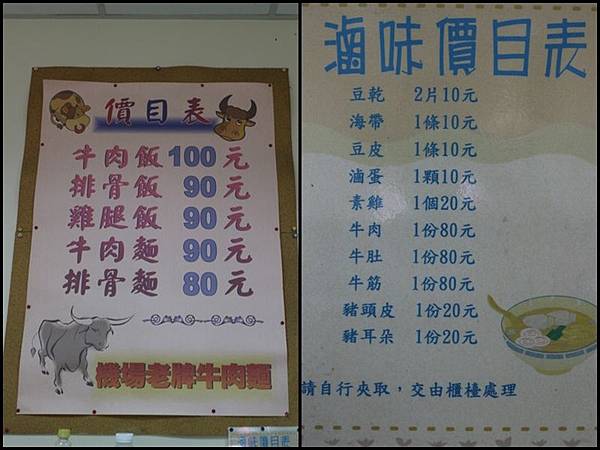 價目表
牛肉飯 100 元
排骨飯 90 元
雞腿飯 90 元
牛肉麵 90 元
排骨麵 80 元
機場老牌牛肉麵
滷味價目表
滷味價目表
豆乾 2片10元
海帶 1條10元
豆皮 1條10元
滷蛋 1顆10元
素雞 1個20元
牛肉 1份80元
牛肚 1份80元
牛筋 1份80元
豬頭皮 1份20元
豬耳朵 1份20元
請自行夾取，交由櫃檯處理